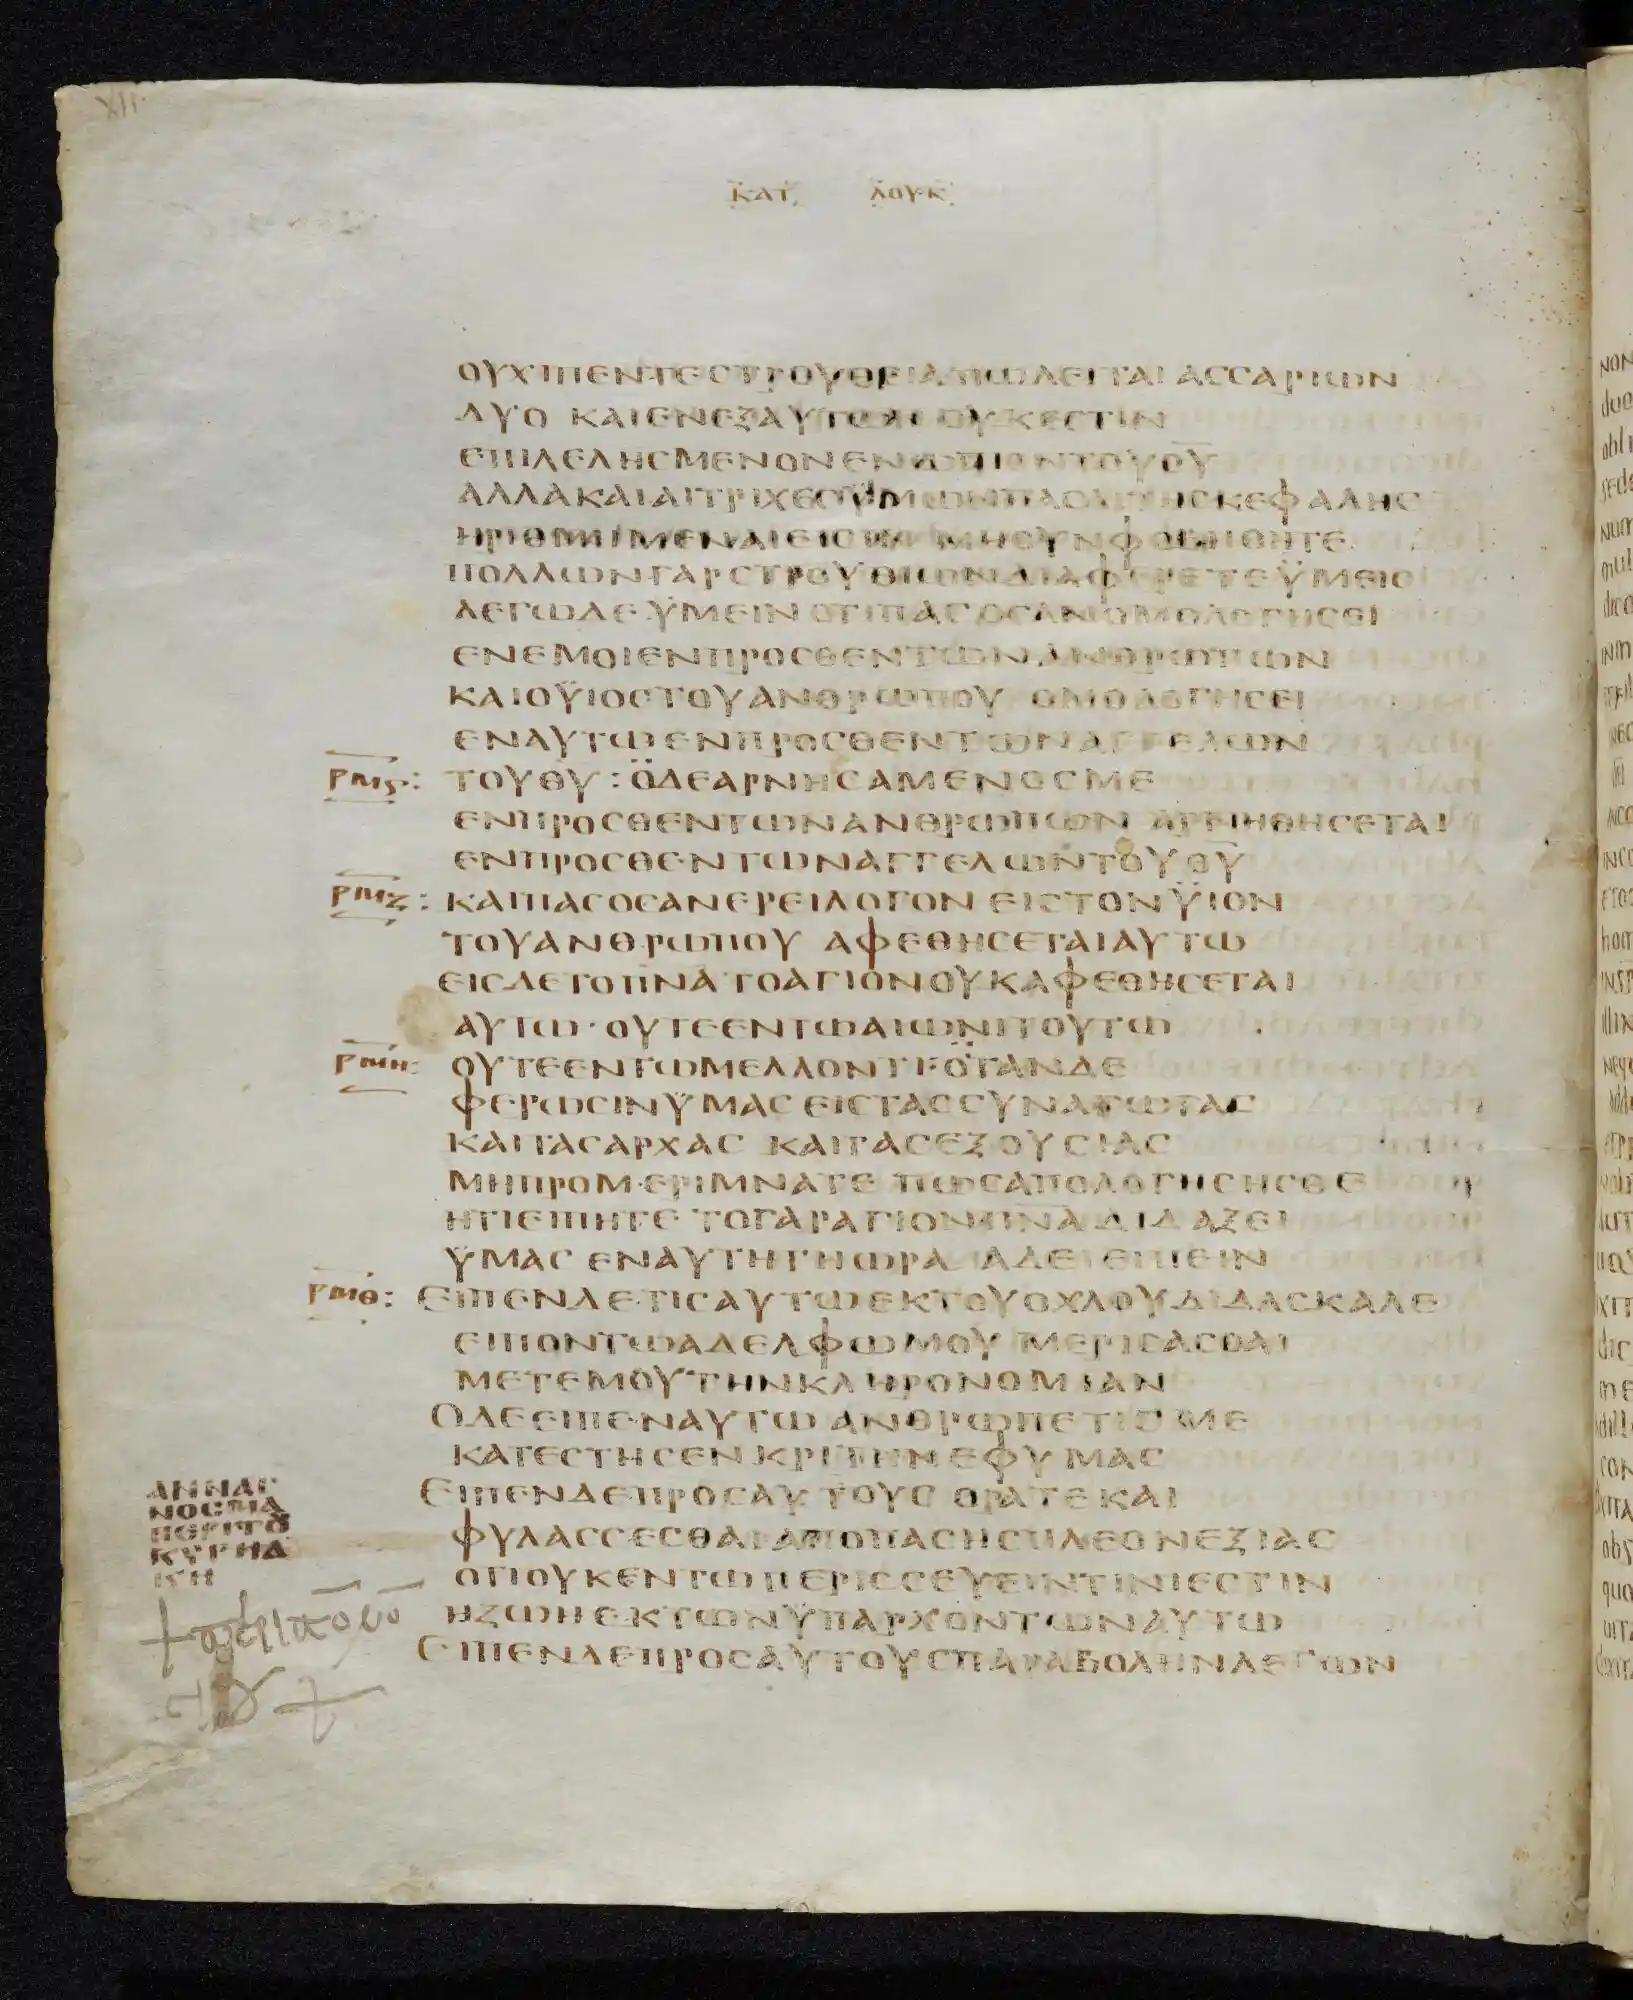 ΚΑΤ ΛΟΥΚ
ΟΥΧΙΠΕΝΤΕΣΤΡΟΥΘΕΙΑΠΩΛΕΙΤΑΙ ΑΣΣΑΡΙΩΝ
ΔΥΟ ΚΑΙΕΝΕΞΑΥΤΩΝ ΟΥΚΕΣΤΙΝ
ΕΠΙΛΕΛΗΣΜΕΝΟΝΕΝΩΠΙΟΝΤΟΥΘΥ
ΑΛΛΑΚΑΙΑΙΤΡΙΧΕΣΫΜΩΝΠΑΣΑΙΤΗΣΚΕΦΑΛΗΣ
ΗΡΙΘΜΗΜΕΝΑΙΕΙΣΙΝ ΜΗΟΥΝΦΟΒΗΘΗΤΕ
ΠΟΛΛΩΝΓΑΡΣΤΡΟΥΘΙΩΝΔΙΑΦΕΡΕΤΕΫΜΕΙΣ
ΛΕΓΩΔΕΫΜΕΙΝ ΟΤΙΠΑΣΟΣΑΝΟΜΟΛΟΓΗΣΕΙ
ΕΝΕΜΟΙΕΝΠΡΟΣΘΕΝΤΩΝΑΝΘΡΩΠΩΝ
ΚΑΙΟΫΙΟΣΤΟΥΑΝΘΡΩΠΟΥ ΟΜΟΛΟΓΗΣΕΙ
ΕΝΑΥΤΩΕΝΠΡΟΣΘΕΝΤΩΝΑΓΓΕΛΩΝ
ΡΜϚ: ΤΟΥΘΥ : ΟΔΕΑΡΝΗΣΑΜΕΝΟΣΜΕ
ΕΝΠΡΟΣΘΕΝΤΩΝΑΝΘΡΩΠΩΝ ΑΡΝΗΘΗΣΕΤΑΙ
ΕΝΠΡΟΣΘΕΝΤΩΝΑΓΓΕΛΩΝΤΟΥΘΥ
ΡΜΖ: ΚΑΙΠΑΣΟΣΑΝΕΡΕΙΛΟΓΟΝ ΕΙΣΤΟΝΫΙΟΝ
ΤΟΥΑΝΘΡΩΠΟΥ ΑΦΕΘΗΣΕΤΑΙΑΥΤΩ
ΕΙΣΔΕΤΟΠΝΑΤΟΑΓΙΟΝΟΥΚΑΦΕΘΗΣΕΤΑΙ
ΑΥΤΩ· ΟΥΤΕΕΝΤΩΑΙΩΝΙΤΟΥΤΩ
ΡΜΗ: ΟΥΤΕΕΝΤΩΜΕΛΛΟΝΤΙ·ΟΤΑΝΔΕ
ΦΕΡΩΣΙΝΫΜΑΣ ΕΙΣΤΑΣΣΥΝΑΓΩΓΑΣ
ΚΑΙΤΑΣΑΡΧΑΣ ΚΑΙΤΑΣΕΞΟΥΣΙΑΣ
ΜΗΠΡΟΜΕΡΙΜΝΑΤΕ ΠΩΣΑΠΟΛΟΓΗΣΗΣΘΕ
ΗΤΙΕΙΠΗΤΕ ΤΟΓΑΡΑΓΙΟΝΠΝΑ ΔΙΔΑΞΕΙ
ΫΜΑΣ ΕΝΑΥΤΗΤΗΩΡΑ ΑΔΕΙ ΕΙΠΕΙΝ
ΡΜΘ: ΕΙΠΕΝΔΕΤΙΣΑΥΤΩΕΚΤΟΥΟΧΛΟΥΔΙΔΑΣΚΑΛΕ
ΕΙΠΟΝΤΩΑΔΕΛΦΩΜΟΥ ΜΕΡΙΣΑΣΘΑΙ
ΜΕΤΕΜΟΥΤΗΝΚΛΗΡΟΝΟΜΙΑΝ
ΟΔΕΕΙΠΕΝΑΥΤΩ ΑΝΘΡΩΠΕΤΙΣ ΜΕ
ΚΑΤΕΣΤΗΣΕΝΚΡΙΤΗΝΕΦΥΜΑΣ
ΕΙΠΕΝΔΕΠΡΟΣΑΥΤΟΥΣ ΟΡΑΤΕΚΑΙ
ΦΥΛΑΣΣΕΣΘΑΙΑΠΟΠΑΣΗΣΠΛΕΟΝΕΞΙΑΣ
ΟΤΙΟΥΚΕΝΤΩΠΕΡΙΣΣΕΥΕΙΝΤΙΝΙΕΣΤΙΝ
ΗΖΩΗΕΚΤΩΝΫΠΑΡΧΟΝΤΩΝΑΥΤΩ
ΕΙΠΕΝΔΕΠΡΟΣΑΥΤΟΥΣΠΑΡΑΒΟΛΗΝΛΕΓΩΝ
ΑΝΝΑΓ
ΝΟΣΜΑ
ΠΕΡΙΤΟ
ΚΥΡΗΑ
ΚΗ